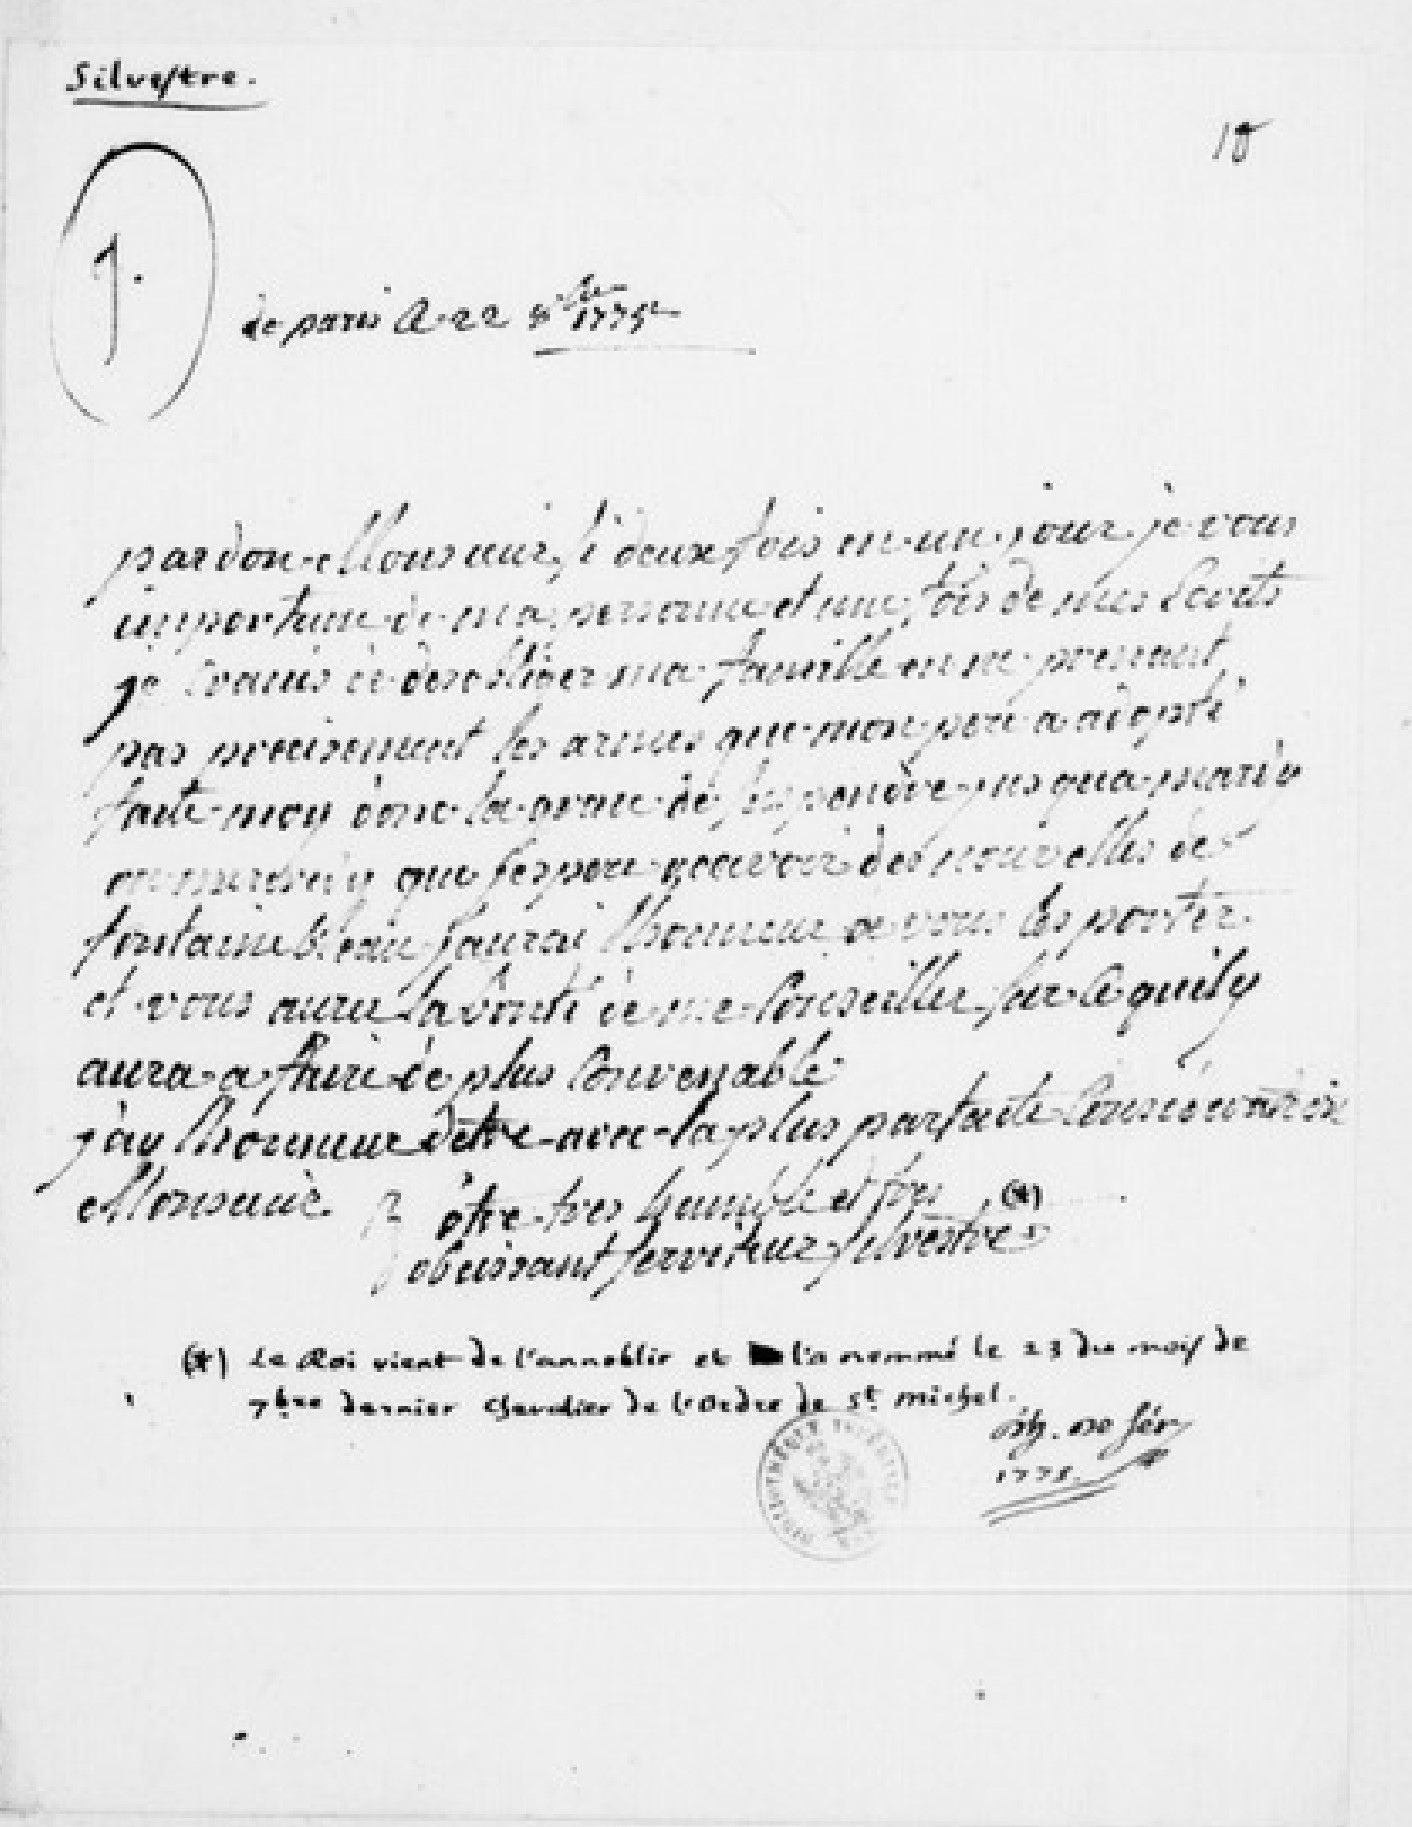 Silvestre.
18
J.
de paris Ce 22 8bre 1775
pardon Monsieur si deux fois en un jour je vous
importune de ma personne et une fois de mes Ecrits
je Crains de desobliger ma famille en ne prenant
pas precisement les armes que mon pere a adopté
faite moy donc la grace de suspendre jusqua mardy
ou mercredy que jespere recevoir des nouvelles de
fontainebleau jaurai lhonneur de vous les porter
et vous aurez la bonté de me Conseiller sur Ce quil y
aura a faire de plus Convenable
jay lhonneur detre avec la plus parfaite Consideration
Monsieur
Vôtre tres humble et tres (*)
obeissant serviteur Silvestre
(*) Le Roi vient de l'annoblir et l'a nommé le 23 du mois de
7bre dernier Chevalier de l'Ordre de St. Michel.
D'h. de Sér
1775.
BIBLIOTHÈQUE IMPÉRIALE